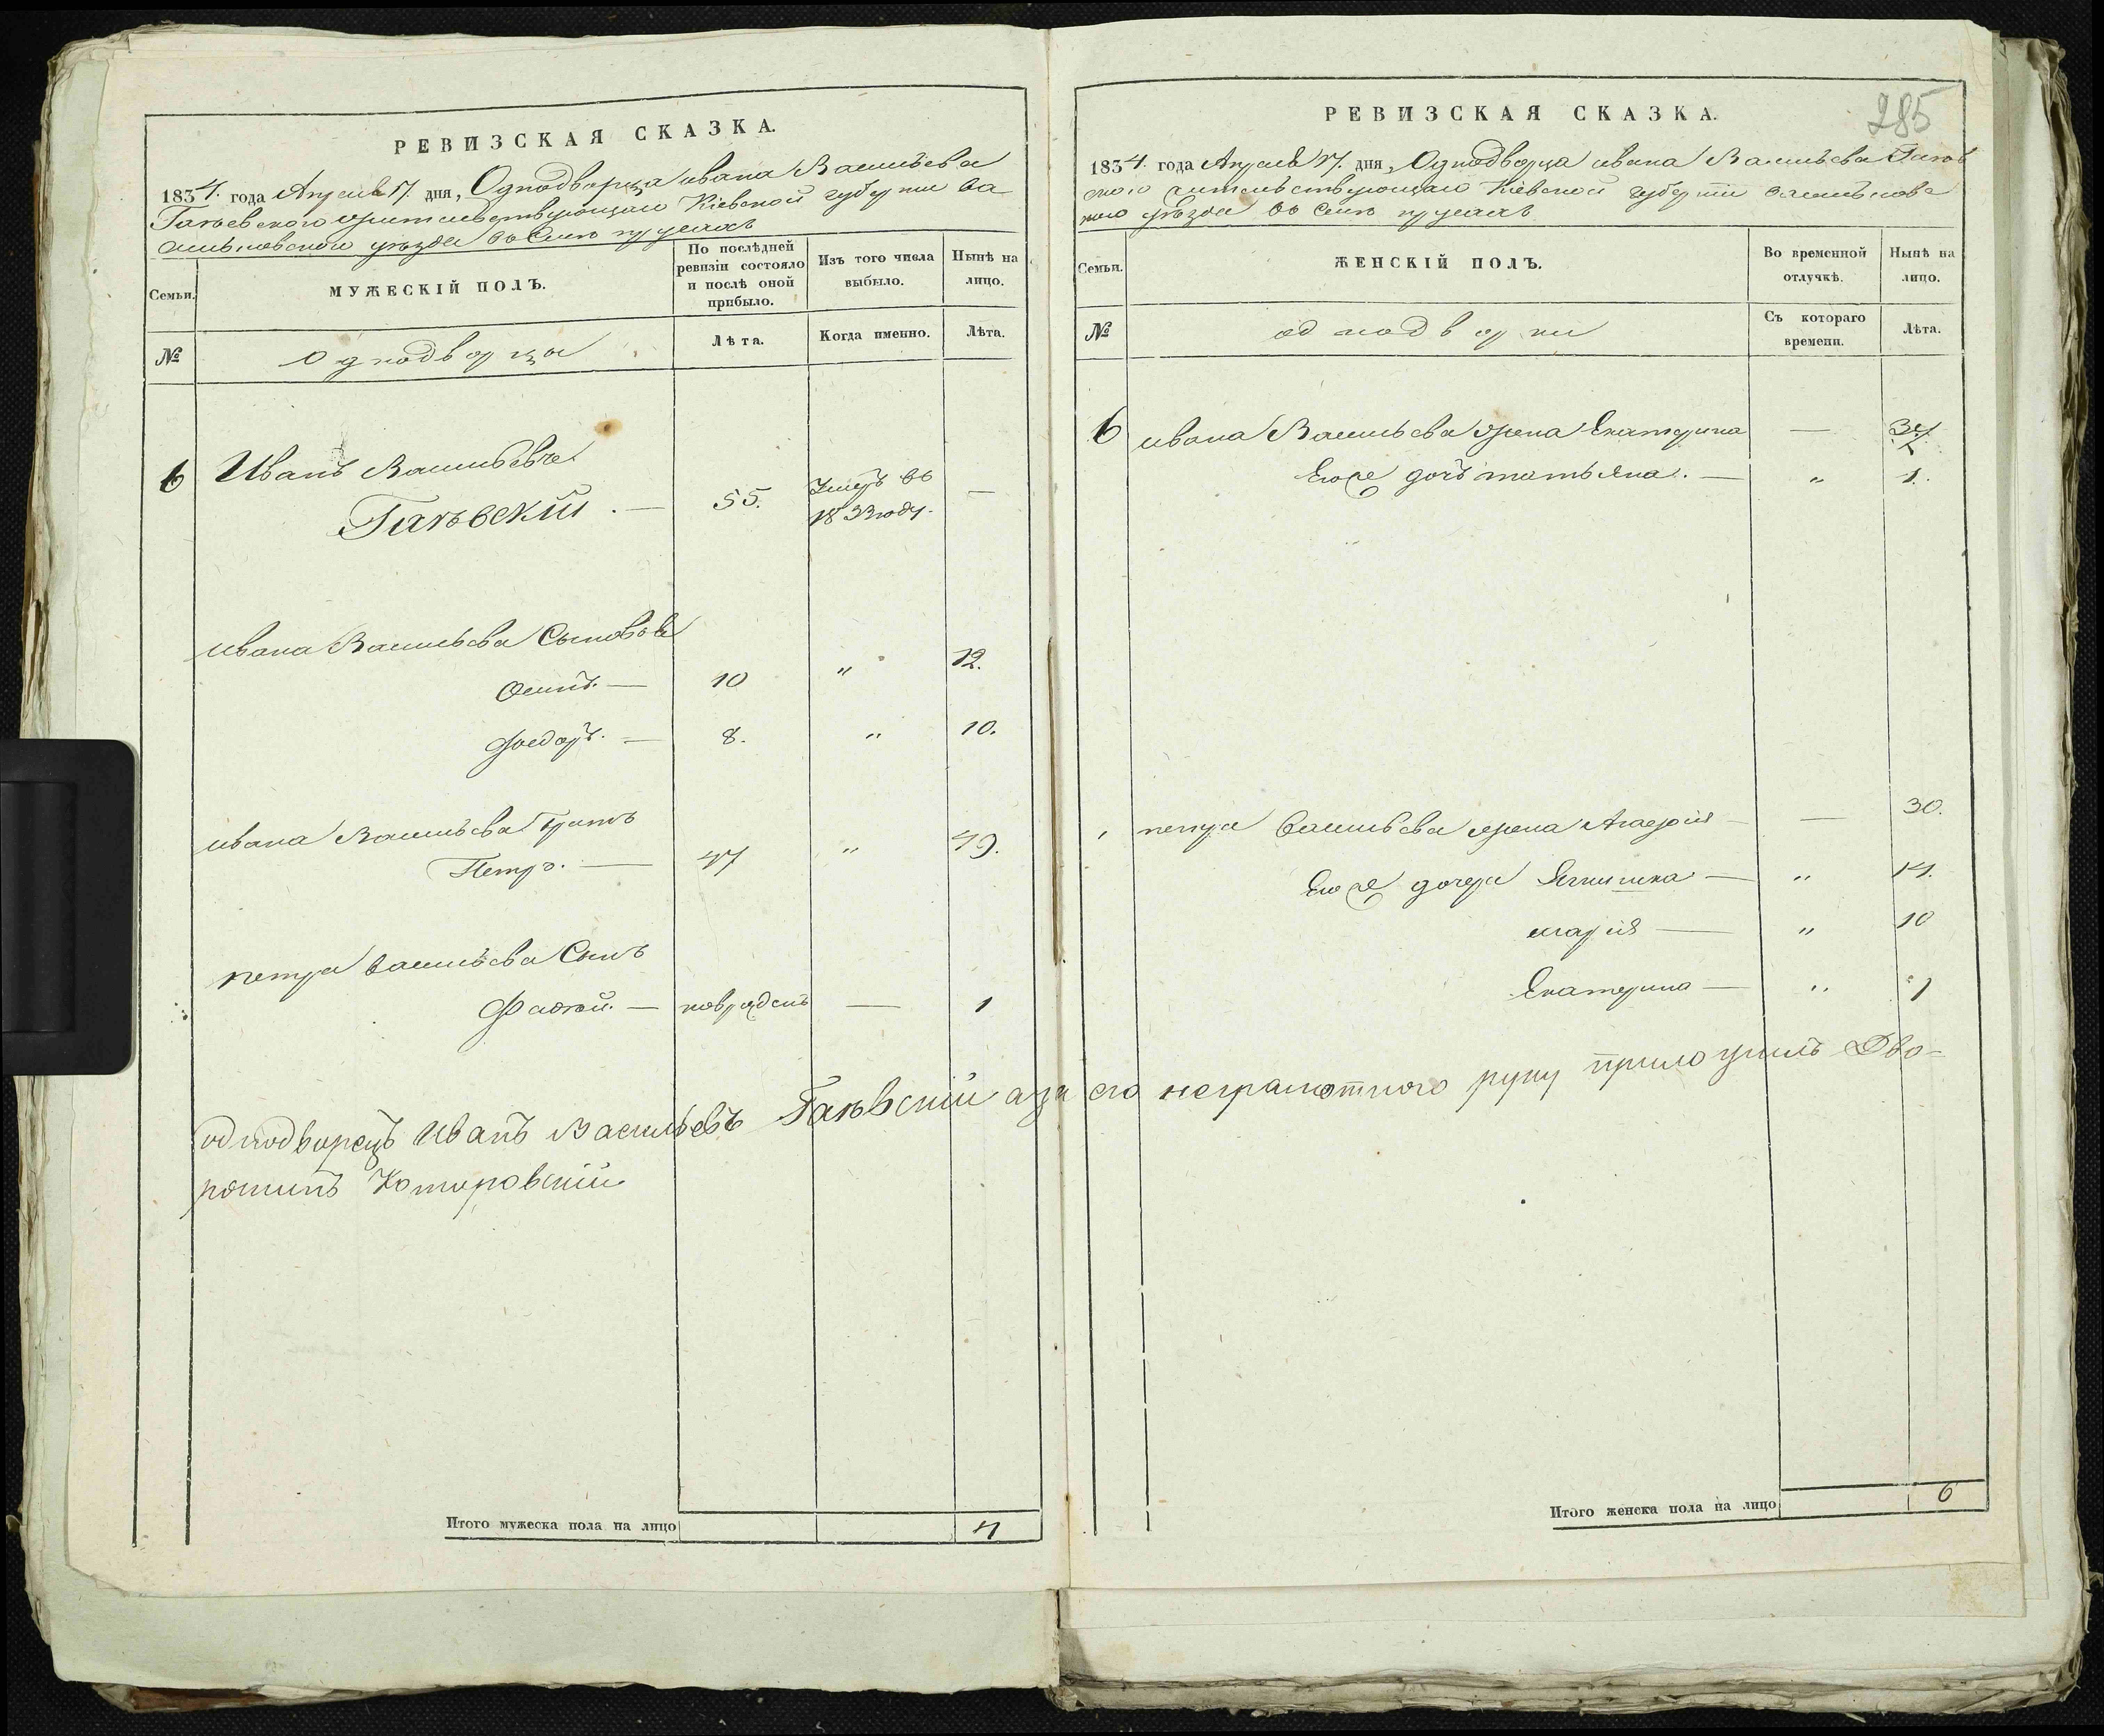 РЕВИЗСКАЯ СКАЗКА.
1834. года Апреля 17. дня, Однодворца ивана Васильева
Гаѣевского жительствующаго Кіевской губерніи Ва
сильковского уѣзда въ Селѣ
Семьи.
МУЖЕСКІЙ ПОЛЪ.
По послѣдней ревизіи состояло и послѣ оной прибыло.
Изъ того числа выбыло.
Нынѣ на лицо.
№
Однодворцы
Лѣта.
Когда именно.
Лѣта.
6 Иванъ Васильевъ
Гаѣвскій . — 55. Умеръ въ 1833 году. —
ивана Васильева Сыновья
Осипъ. — 10 „ 12.
Федоръ. — 8. „ 10.
ивана Васильева братъ
Петръ. — 47 „ 49.
петра васильева Сынъ
Фадей. — новорожденъ — 1
однодворецъ Иванъ Васильевъ Гаевскій а за его неграмотного руку приложилъ Дво-
рянинъ Комаровскій
Итого мужеска пола на лицо 4
285
РЕВИЗСКАЯ СКАЗКА.
1834. года Апреля 17. дня, Однодворца ивана Васильева Гаѣв
ского жительствующаго Кіевской губерніи Васильков
ского уѣзда въ Селѣ
Семьи.
ЖЕНСКІЙ ПОЛЪ.
Во временной отлучкѣ.
Нынѣ на лицо.
№
однодворки
Съ котораго времени.
Лѣта.
6 ивана Васильева жена Екатерина — 34
Его же дочь татьяна. — „ 1.
петра Васильева жена Агафія — — 30.
Его же дочери — „ 14.
марія — „ 10
Екатерина — „ 1
Итого женска пола на лицо 6